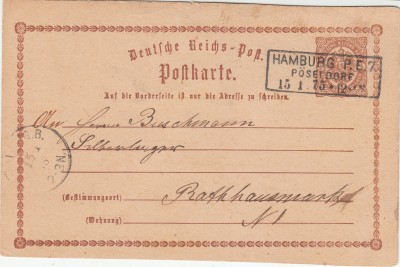 Deutsche Reichs-Post.
Postkarte.
HAMBURG P.E.7.
PÖSELDORF
15 1 75
Auf die Vorderseite ist nur die Adresse zu schreiben.
An Herrn Buschmann
Silberlager
(Bestimmungsort) Rathhausmarkt
(Wohnung) N 1